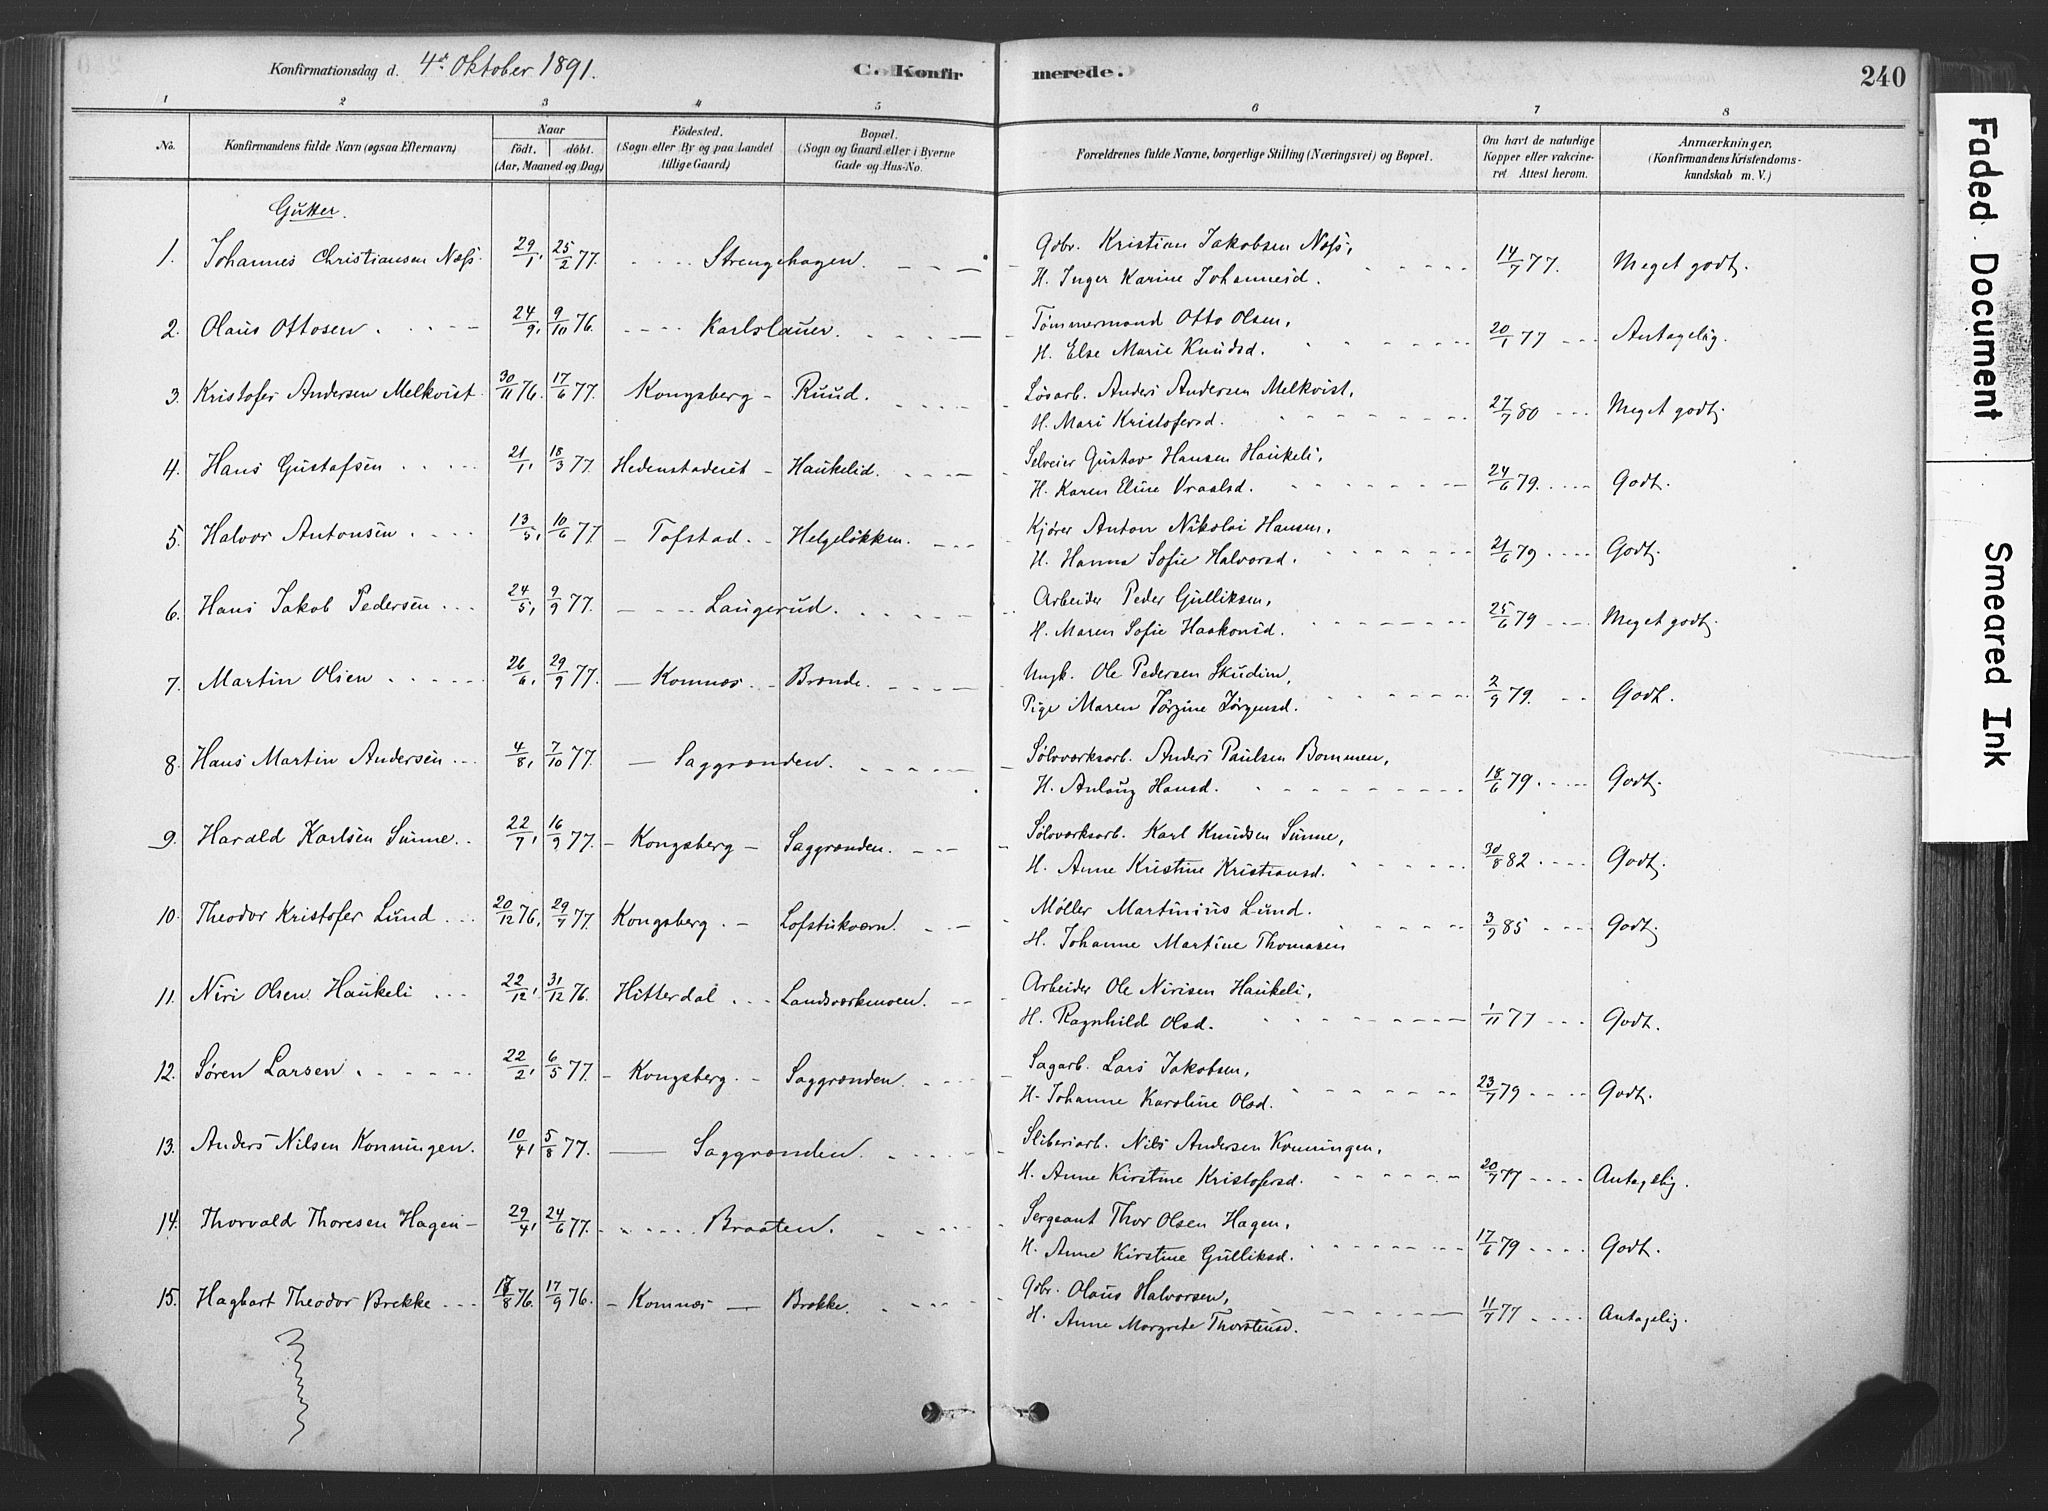 Konfirmationsdag d. 4de Oktober 1891.
C. Konfirmerede.
240
1 2 3 4 5 6 7 8
No.
Konfirmandens fulde Navn (ogsaa Efternavn)
Naar
født. døbt.
(Aar, Maaned og Dag)
Fødested.
(Sogn eller By og paa Landet tillige Gaard)
Bopæl.
(Sogn og Gaard eller i Byerne Gade og Hus-No.
Forældrenes fulde Navne, borgerlige Stilling (Næringsvei) og Bopæl.
Om havt de naturlige Kopper eller vakcineret Attest herom.
Anmærkninger.
(Konfirmandens Kristendomskundskab m. V.)
Gutter.
1. Johannes Christiansen Næss. 29/1, 25/2 77. Strengehagen. Gdbr. Kristian Jakobsen Næss, 14/7 77. Meget godt.
H. Inger Karine Johannesd.
2. Olaus Ottosen 24/9, 9/10 76. Karlslauer. Tømmermand Otto Olsen, 20/1 77 Antagelig.
H. Else Marie Knudsd.
3. Kristofer Andersen Melkvist. 30/11 76. 17/6 77. Kongsberg - Ruud. Løsarb. Anders Andersen Melkvist, 27/7 80 Meget godt.
H. Mari Kristofersd.
4. Hans Gustafsen 21/1, 18/3 77. Hedenstadeiet - Haukelid. Selveier Gustav Hansen Haukeli, 24/6 79. Godt.
H. Karen Eline Vraalsd.
5. Halvor Antonsen 13/5, 10/6 77 - Tofstad. - Helgeløkken. Kjører Anton Nikolai Hansen, 21/6 79 Godt.
H. Hanna Sofie Halvorsd.
6. Hans Jakob Pedersen 24/5, 9/9 77. Laugerud. Arbeider Peder Gulliksen, 25/6 79 Meget godt.
H. Maren Sofie Haakonsd.
7. Martin Olsen 26/6, 29/9 77. - Komnæs - Brænde. Ungk. Ole Pedersen Skudim, 2/9 79. Godt.
Pige Maren Jørgine Jørgensd.
8. Hans Martin Andersen 4/8, 7/10 77. - Saggrænden. Sølvværksarb. Anders Paulsen Bommen, 18/6 79. Godt.
H. Anlaug Hansd.
9. Harald Karlsen Sunne. 22/7, 16/9 77. - Kongsberg - Saggrænden. Sølvværksarb. Karl Knudsen Sunne, 30/8 82. Godt.
H. Anne Kristine Kristiansd.
10. Theodor Kristofer Lund 20/12 76, 29/7 77. Kongsberg. - Lofstukværn. Møller Martinius Lund. 3/9 85 Godt.
H. Johanne Martine Thomasen
11. Niri Olsen Haukeli 22/12, 31/12 76. Hitterdal Landsværkmoen. Arbeider Ole Nirisen Haukeli, 1/11 77 Godt.
H. Ragnhild Olsd.
12. Søren Larsen 22/2, 6/5 77. - Kongsberg. - Saggrænden. Sagarb. Lars Jakobsen, 23/7 79 Godt.
H. Johanne Karoline Olsd.
13. Anders Nilsen Konningen. 10/4, 5/8 77. Saggrænden. Sliberiarb. Nils Andersen Konningen, 20/7 77 Antagelig.
H. Anne Kirstine Kristofersd.
14. Thorvald Thoresen Hagen 29/4, 24/6 77. Braaten. Sergeant Thor Olsen Hagen, 17/6 79 Godt.
H. Anne Kirstine Gulliksd.
15. Hagbart Theodor Brekke 18/8 76. 17/9 76. - Komnæs - Brekke. Gdbr. Olaus Halvorsen, 11/7 77 Antagelig.
H. Anne Margrete Thorstensd.
Faded Document
Smeared Ink